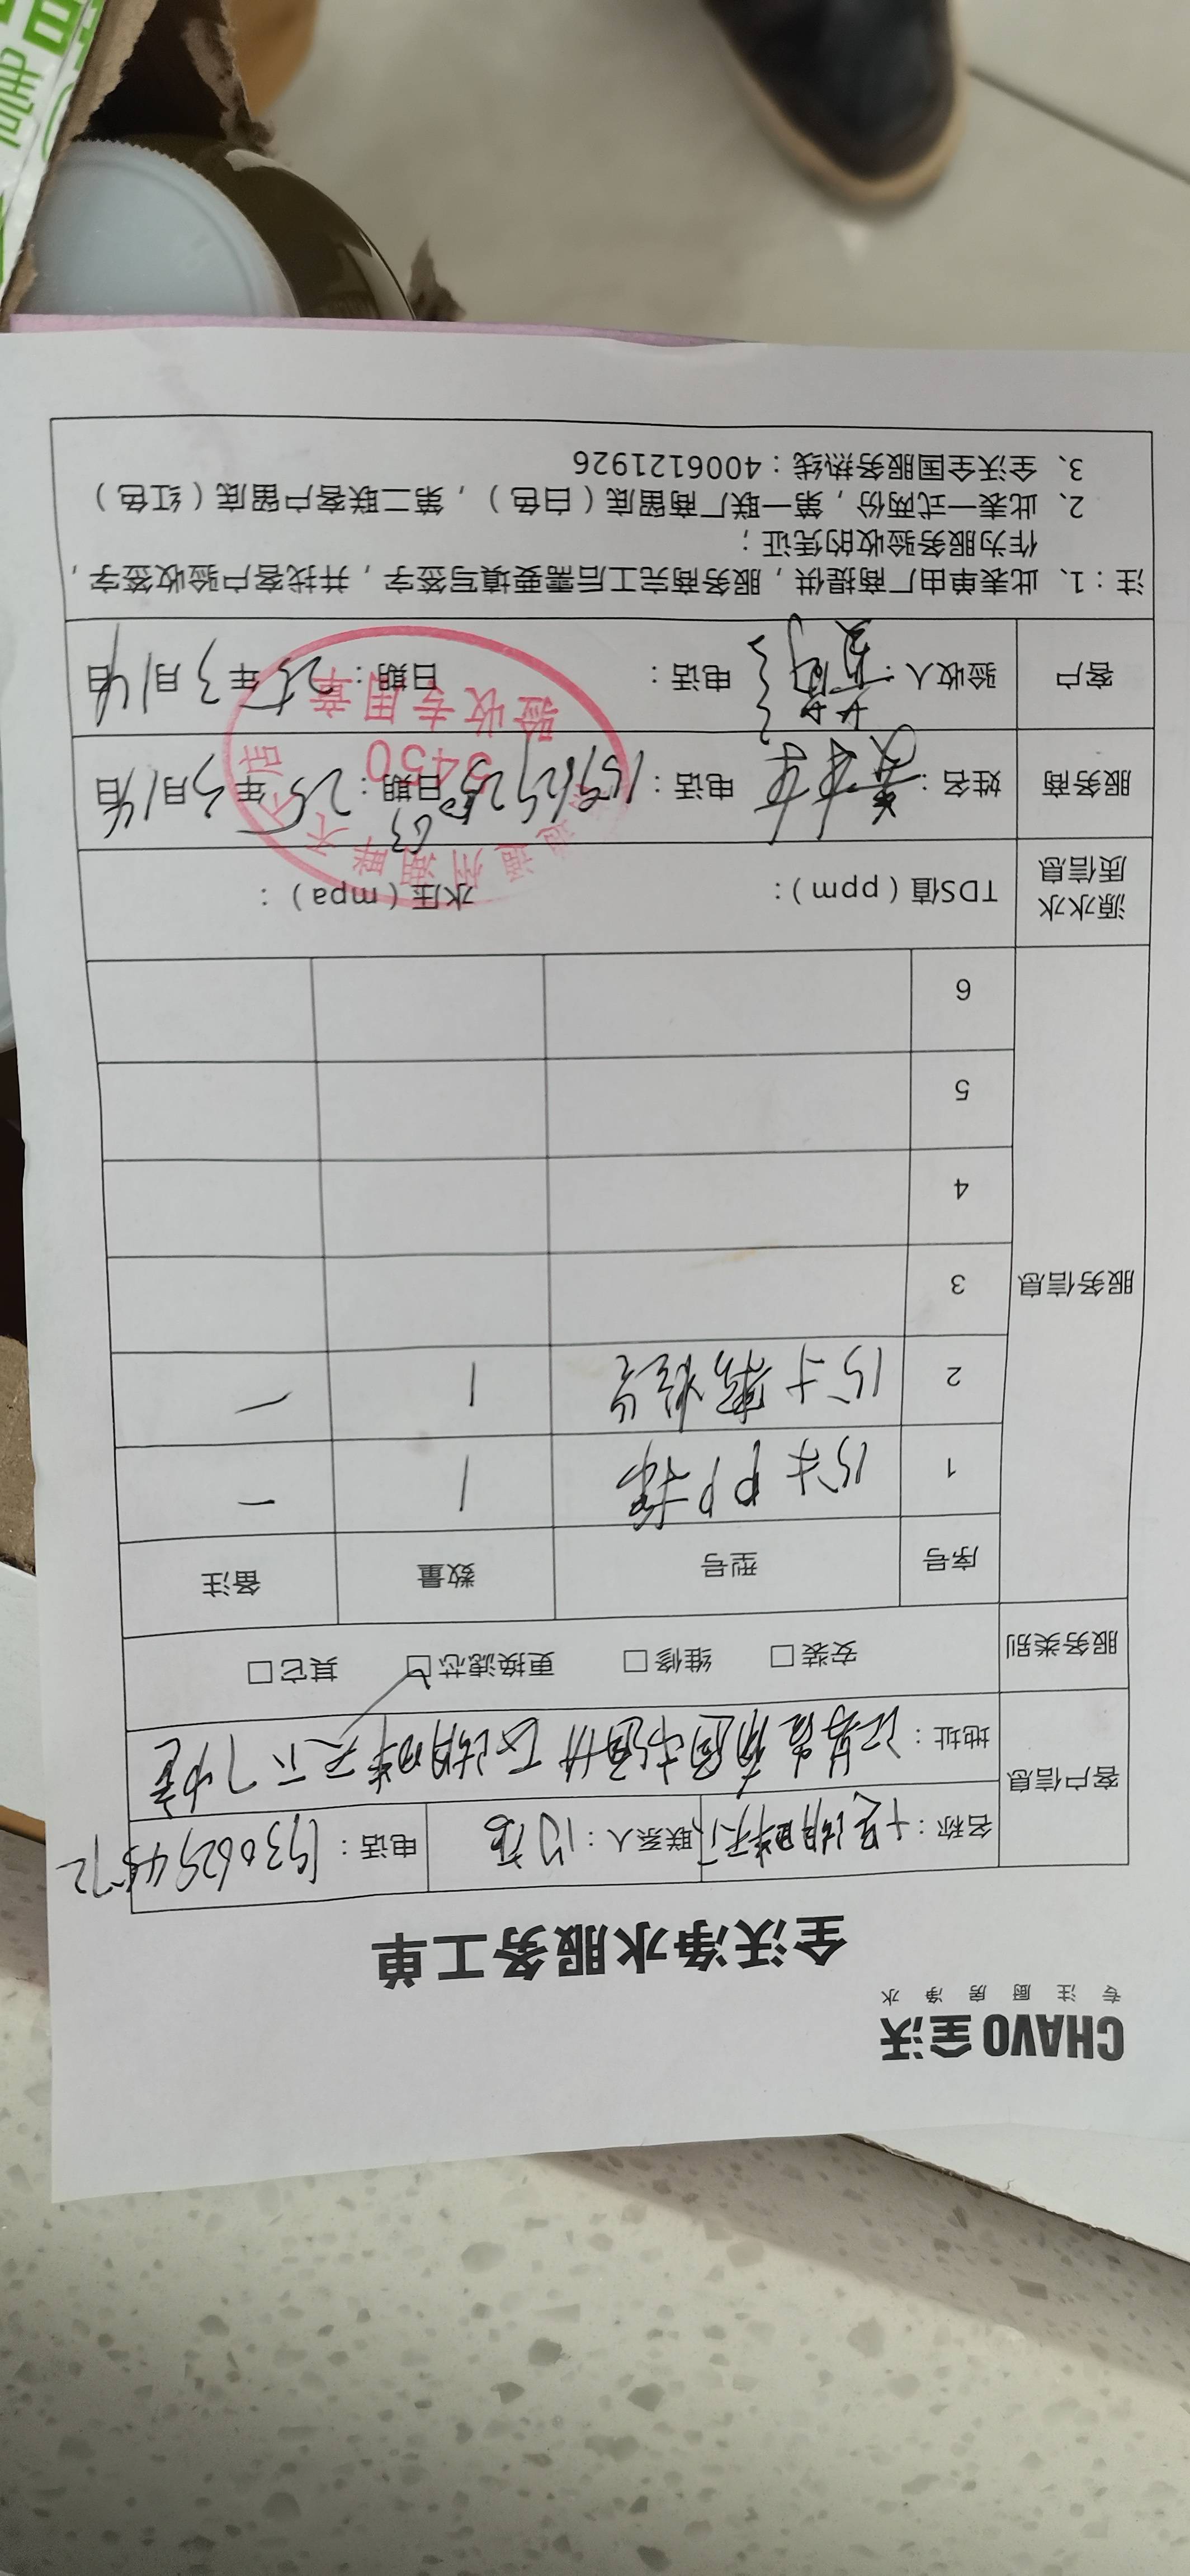 CHAVO 全沃
专注厨房净水
全沃净水服务工单
客户信息
名称: 湖畔天 联系人: 电话: 19306294572
地址: 江苏省南通市通州区湖畔天
服务类别
安装□ 维修□ 更换滤芯□ 其它□
服务信息
序号 型号 数量 备注
1 15寸PP棉 1 一
2 15寸 1 一
3
4
5
6
源水水质信息
TDS值(ppm): 水压(mpa):
服务商 姓名: 电话: 日期: 25年3月14日
客户 验收人: 电话: 日期: 25年3月14日
通州湖畔天下店
5450
验收专用章
注:1、此表单由厂商提供,服务商完工后需要填写签字,并找客户验收签字,
作为服务验收的凭证;
2、此表一式两份,第一联厂商留底(白色),第二联客户留底(红色)
3、全沃全国服务热线:4006121926